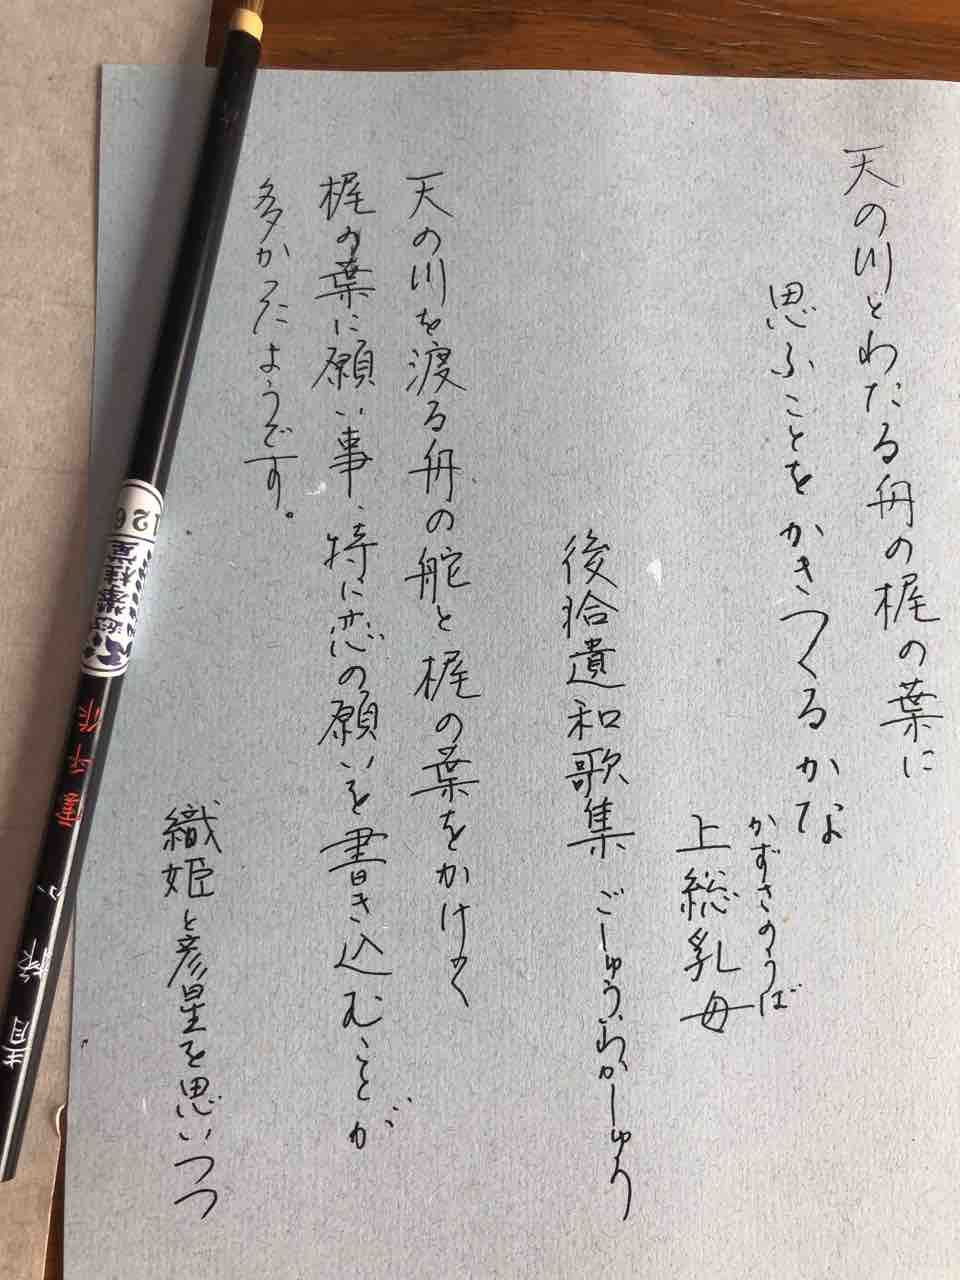 天の川とわたる舟の梶の葉に
思ふことをかきつくるかな
かずさのうば
上総乳母
後拾遺和歌集 ごしゅうわかしゅう
天の川を渡る舟の舵と梶の葉をかけて
梶の葉に願い事、特に恋の願いを書き込むことが
多かったようです。
織姫と彦星を思いつつ
126